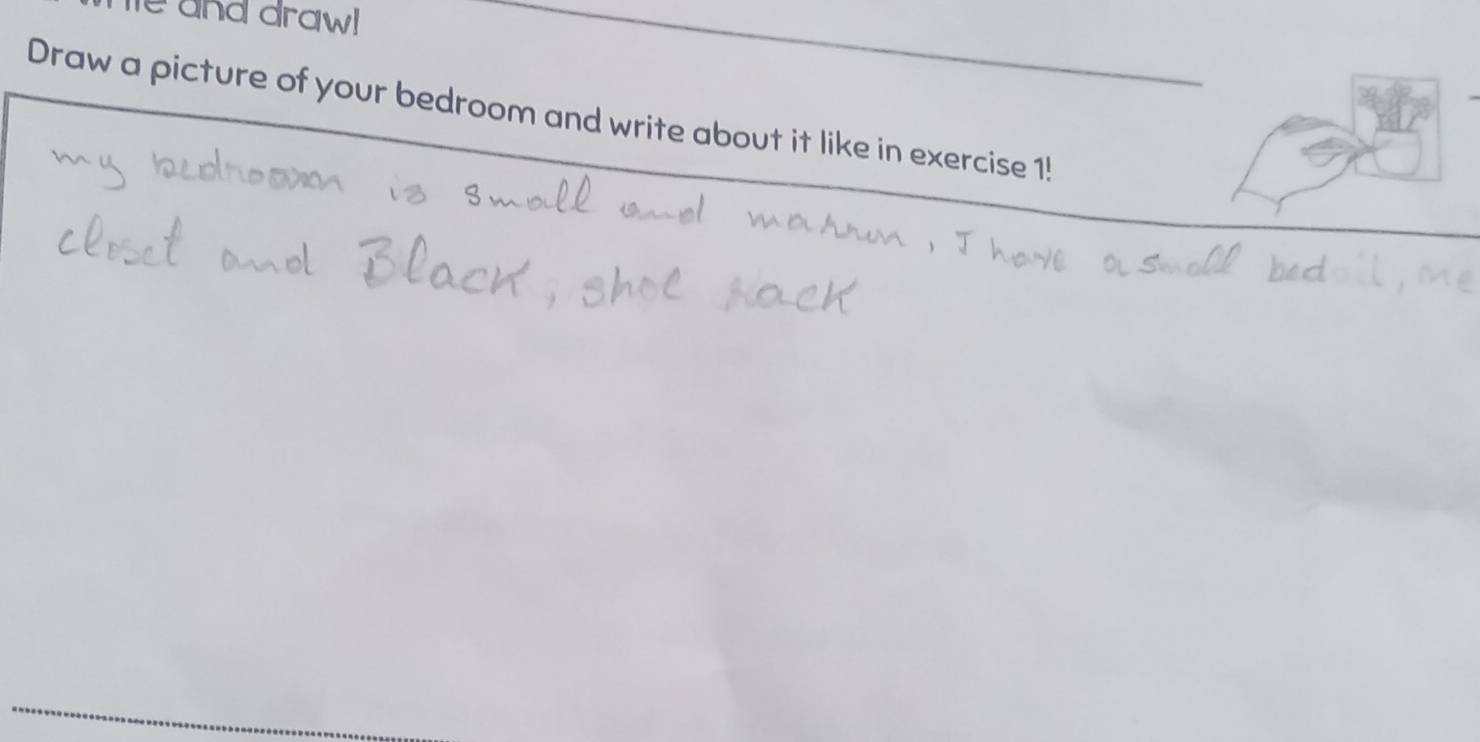 and draw!
Draw a picture of your bedroom and write about it like in exercise 1!
my bedroom is small and , I have a small bed, me
closet and Black, shoe rack